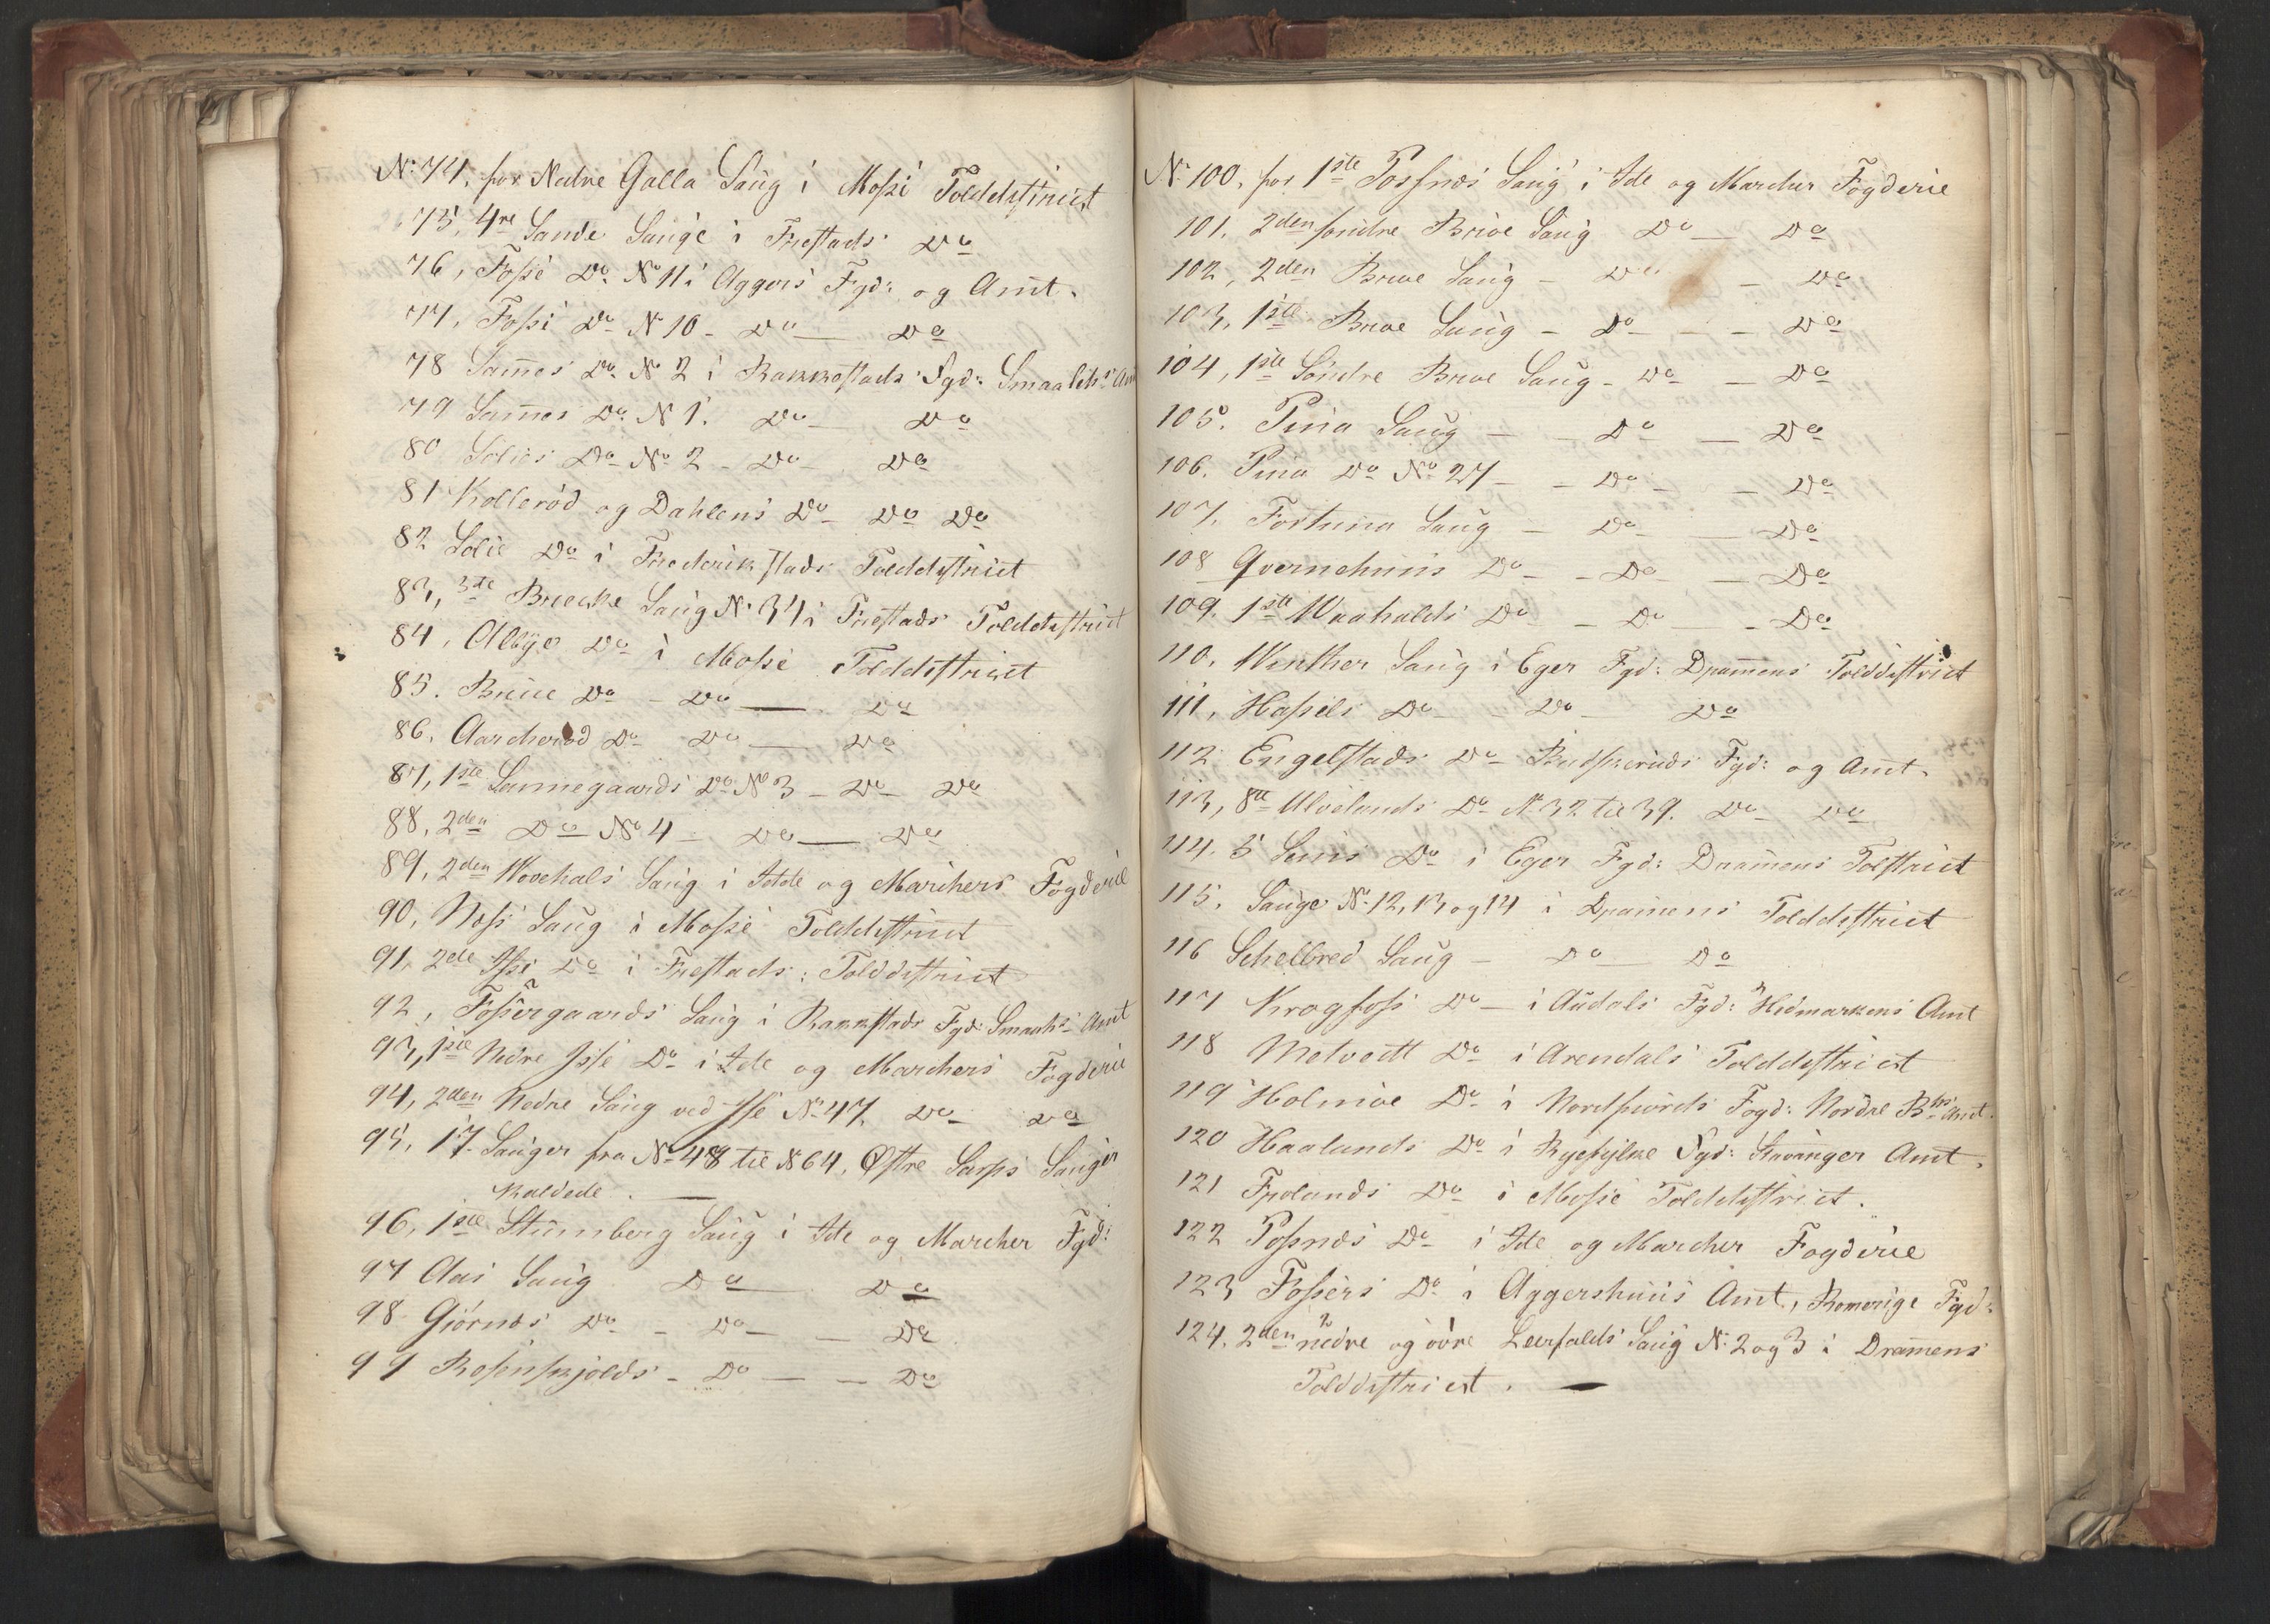 No 74, for Nedre Galla Saug i Mosse Tolddistrict
75, 4re Sande Sauge i Friestads Do
76, Fosse Do No 11 i Aggers Fgd: og Amt.
77, Fosse Do No 10 - Do — Do
78 Sames Do No 2 i Rakkestads Fgd: Smaalehs Amt
79 Sames Do No 1. Do — Do
80 Solies Do No 2 - Do - Do
81 Kollerød og Dahlens Do - Do Do
82 Solie Do i Friederikstads Tolddistrict
83, 3te Brecke Saug No 34 i Friestads Tolddistrict
84, Albye Do i Mosse Tolddistrict
85. Bruue Do - Do — Do
86. Aarcherød Do Do — Do
87, 1ste Sannegaards Do No 3 - Do - Do
88, 2den Do No 4 - Do — Do
89, 2den Wevehals Saug i Idde og Marchers Fogderie
90, Ness Saug i Mosse Tolddistrict
91, 2de Isse Do i Friestads: Tolddistrict
92, Fossergaards Saug i Rakkstads Fgd: Smaalhs Amt
93, 1ste Nedre Isse Do i Ide og Marchers Fogderie
94, 2den Nedre Saug ved Isse No 47. Do - Do
95, 17 Sauger fra No 48 til No 64, Østre Sarps Sauger
kaldede. —
96, 1ste Stumberg Saug i Ide og Marcher Fgd:
97 Aas Saug Do — Do
98 Giørnes Do - Do — Do
99 Rosenskjolds - Do — — Do
No 100, for 1ste Possnes Saug i Ide og Marcher Fogderie
101. 2den søndre Brioe Saug Do — Do
102, 2den Brioe Saug - Do - Do
103, 1ste Brioe Saug - Do - - Do
104, 1ste Søndre Brioe Saug - Do — Do
105. Pina Saug — - Do — Do
106. Pina Do No 27 - - Do - - Do
107, Fortuna Saug - Do — Do
108 Qvernehuus Do - - Do — Do
109. 1ste Waahalds Do - Do - Do
110, Winther Saug i Eger Fgd: Dramens Tolddistrict
111, Hassels Do - Do - Do
112 Engelstads Do Budskeruds Fgd: og Amt.
113, 8te Ulvelunds Do No 32 til 39. Do - Do
114. 3 Sems Do i Eger Fgd: Dramens Tolstrict
115. Sauge No 12, 13 og 14 i Dramens Tolddistrict
116 Schelbred Saug - Do — Do
117 Kragfoss Do - i Audals Fgd: Hedmarkens Amt
118 Metvedt Do i Arendals Tolddistrict
119 Holmøe Do i Nordfiords Fogd: Nordre Bhs Amt.
120 Haalands Do i Ryefylke Fgd: Stavanger Amt,
121 Frolands Do i Mosse Tolddistrict.
122 Possnes Do i Ide og Marcher Fogderie
123 Fossers Do i Aggershuus Amt, Romerige Fgd:
124. 2den nedre og øvre Leerfalds Saug No 2 og 3 i Dramens
Tolddistrict. —